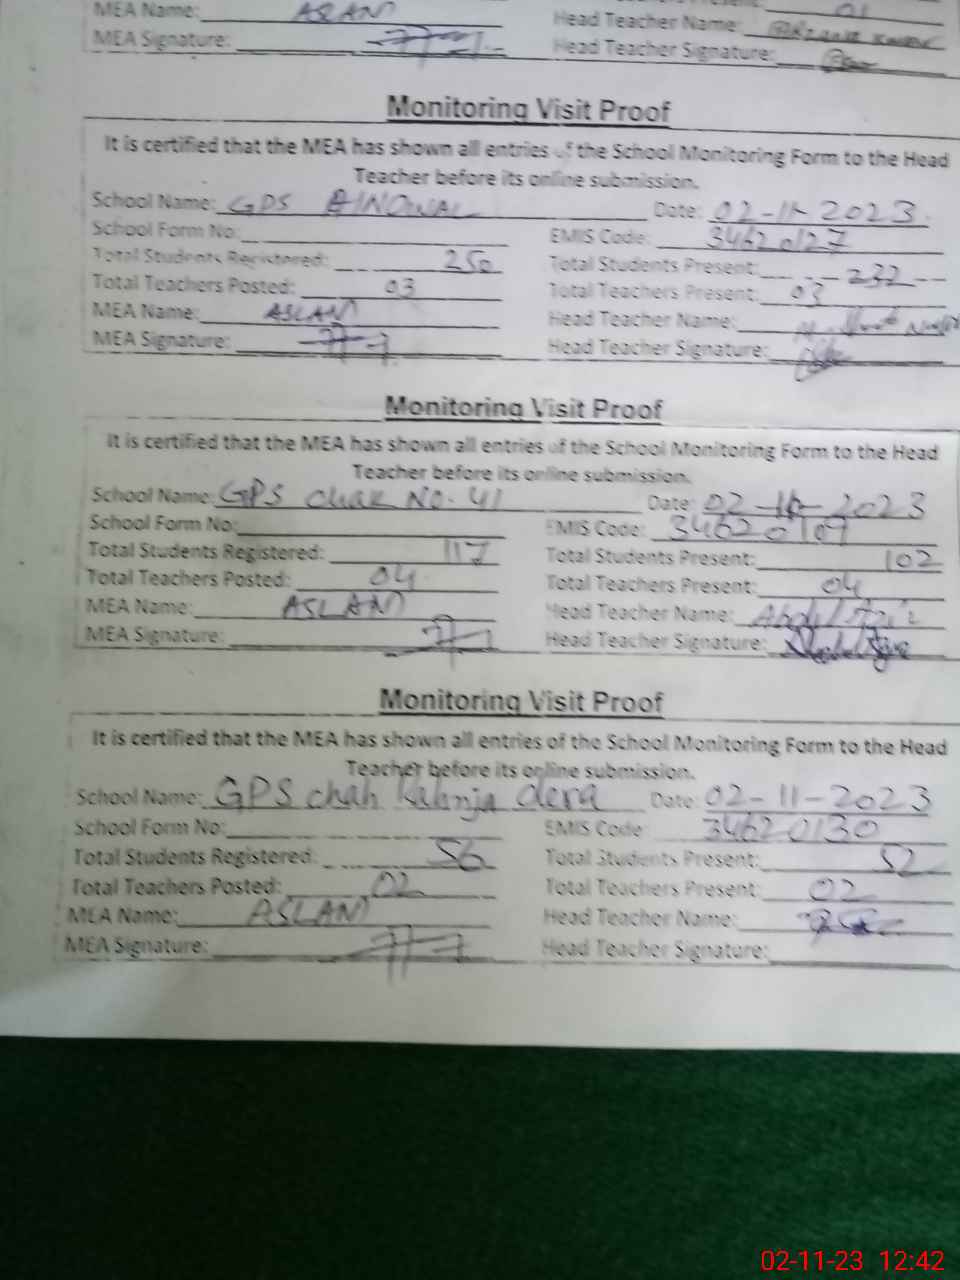 MEA Name: ASLAN Head Teacher Name:
MEA Signature: Head Teacher Signature:
Monitoring Visit Proof
It is certified that the MEA has shown all entries of the School Monitoring Form to the Head
Teacher before its online submission.
School Name: GPS AINOWAL Date: 02-11-2023
School Form No: EMIS Code: 34620127
Total Students Registered: 250 Total Students Present: 232
Total Teachers Posted: 03 Total Teachers Present: 03
MEA Name: ASLAN Head Teacher Name:
MEA Signature: Head Teacher Signature:
Monitoring Visit Proof
It is certified that the MEA has shown all entries of the School Monitoring Form to the Head
Teacher before its online submission.
School Name: GPS Chak No. 41 Date: 02-11-2023
School Form No: EMIS Code: 34620109
Total Students Registered: 117 Total Students Present: 102
Total Teachers Posted: 04 Total Teachers Present: 04
MEA Name: ASLAN Head Teacher Name: Abdul
MEA Signature: Head Teacher Signature:
Monitoring Visit Proof
It is certified that the MEA has shown all entries of the School Monitoring Form to the Head
Teacher before its online submission.
School Name: GPS chah Kahnja dera Date: 02-11-2023
School Form No: EMIS Code 34620130
Total Students Registered: 56 Total Students Present: 52
Total Teachers Posted: 02 Total Teachers Present: 02
MEA Name: ASLAN Head Teacher Name:
MEA Signature: Head Teacher Signature:
02-11-23 12:42